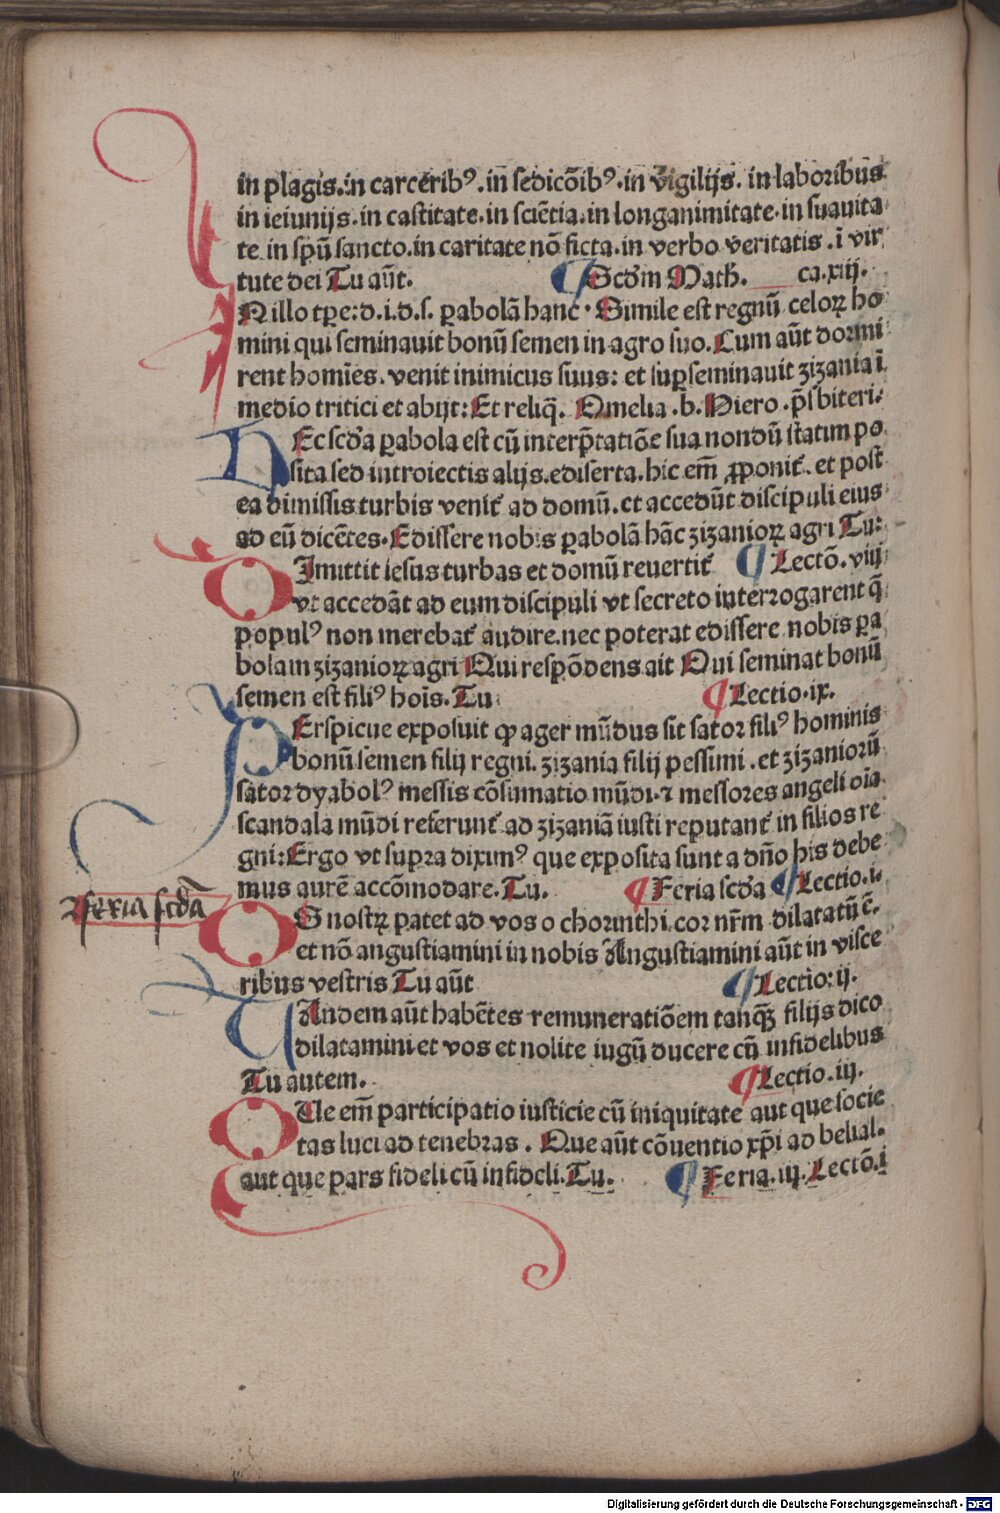 in plagis. in carcerib⁹. in sedicōib⁹. in vigilijs. in laboribus
in ieiunijs. in castitate. in sciētia. in longanimitate. in suauita
te. in sp̄u sancto. in caritate nō ficta. in verbo veritatis. ī vir
tute dei Tu aūt. ¶ Scd'm Math. ca. xiij.
IN illo tp̄e: d. i. d. s. ꝑabolā hanc. Simile est regnū celoꝝ ho
mini qui seminauit bonū semen in agro suo. Cum aūt dormi
rent homīes. venit inimicus suus: et suꝑseminauit zizania ī
medio tritici et abijt: Et reliq̄. Omelia. b. Hiero. p̄sbiteri.
HEc scd'a ꝑabola est cū interp̄tatiōe sua nondū statim po
sita sed introiectis alijs. ediserta. hic em̄ ꝓponit᷑. et post
ea dimissis turbis venit᷑ ad domū. et accedūt discipuli eius
ad eū dicētes. Edissere nobis ꝑabolā hāc zizanioꝝ agri Tu:
DImittit iesus turbas et domū reuertit᷑ ¶ Lectō. viij
vt accedāt ad eum discipuli vt secreto interrogarent q̄
popul⁹ non merebat᷑ audire. nec poterat edissere nobis ꝑa
bolam zizanioꝝ agri Qui respōdens ait Qui seminat bonū
semen est fili⁹ hoīs. Tu ¶ Lectio. ix.
PErspicue exposuit ꝙ ager mūdus sit sator fili⁹ hominis
bonū semen filij regni. zizania filij pessimi. et zizaniorū
sator dyabol⁹ messis cōsumatio mūdi. ⁊ messores angeli oīa
scandala mūdi referunt᷑ ad zizaniā iusti reputant᷑ in filios re
gni: Ergo vt supra dixim⁹ que exposita sunt a dn̄o his debe
mus aurē accōmodare. Tu. ¶ Feria scd'a ¶ Lectio. i.
feria scd'a
OS nostꝝ patet ad vos o chorinthi. cor nr̄m dilatatū ē.
et nō angustiamini in nobis Angustiamini aūt in visce
ribus vestris Tu aūt ¶ Lectio: ij.
EAndem aūt habētes remuneratiōem tanqꝫ filijs dico
dilatamini et vos et nolite iugū ducere cū infidelibus
Tu autem. ¶ Lectio. iij.
QUe em̄ participatio iusticie cū iniquitate aut que socie
tas luci ad tenebras. Que aūt cōuentio xp̄i ad belial.
aut que pars fideli cū infideli. Tu. ¶ Feria. iij. Lectō. i
Digitalisierung gefördert durch die Deutsche Forschungsgemeinschaft - DFG